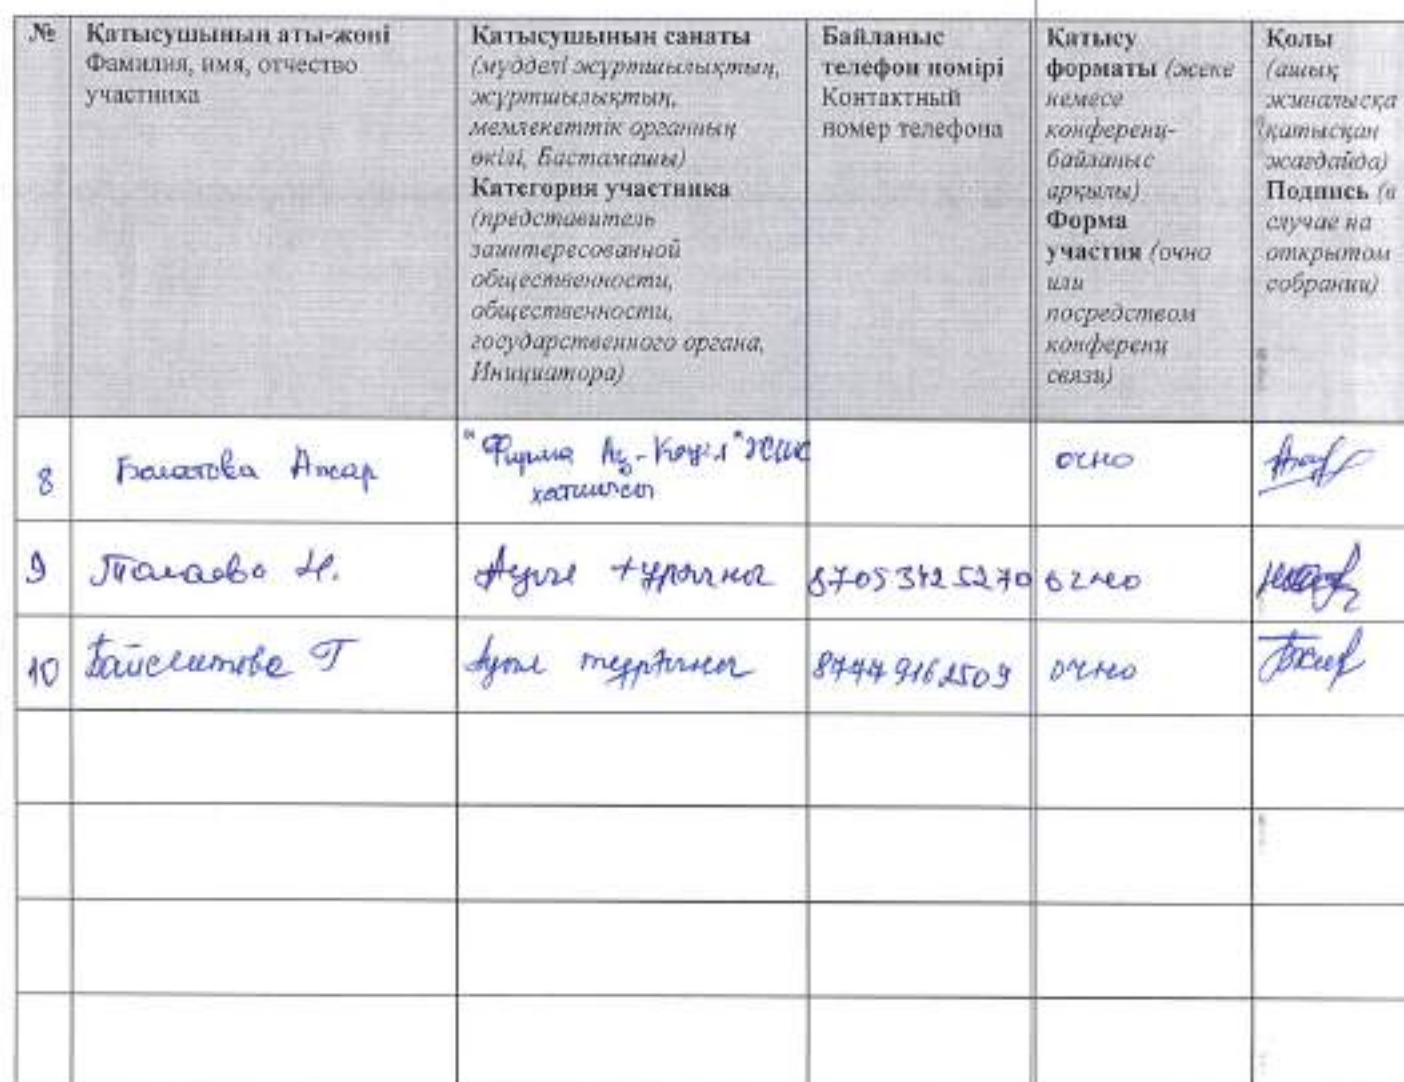 №
Қатысушының аты-жөні
Фамилия, имя, отчество
участника
Қатысушының санаты
(мүдделі жұртшылықтың,
жұртшылықтың,
мемлекеттік органның
өкілі, Бастамашы)
Категория участника
(представитель
заинтересованной
общественности,
общественности,
государственного органа,
Инициатора)
Байланыс
телефон нөмірі
Контактный
номер телефона
Қатысу
форматы (жеке
немесе
конференц-
байланыс
арқылы)
Форма
участия (очно
или
посредством
конференц
связи)
Қолы
(ашық
жиналысқа
қатысқан
жағдайда)
Подпись (в
случае на
открытом
собрании)
8
Болатова Ажар
"Фирма Ақ-Көңіл" ЖШС
хатшысы
очно
9
Н.
Ауыл тұрғыны
87053425270
очно
10
Байсеитова Г
Ауыл тұрғыны
87479162509
очно